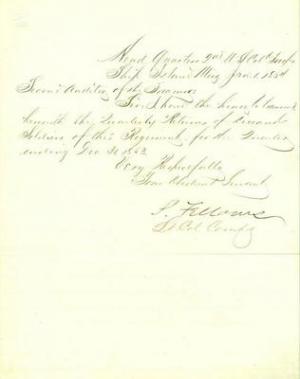 Head Quarters 2nd U S Col'd Inf'y
Ship Island Miss Jan 1 1864
Second Auditor of the Treasury
Sir I have the honor to transmit
herewith the Quarterly Returns of Deceased
Soldiers of this Regiment, for the Quarter
ending Dec 31 1863
Very Respectfully
Your Obedient Servant
S. Fellows
Lt Col Comdg